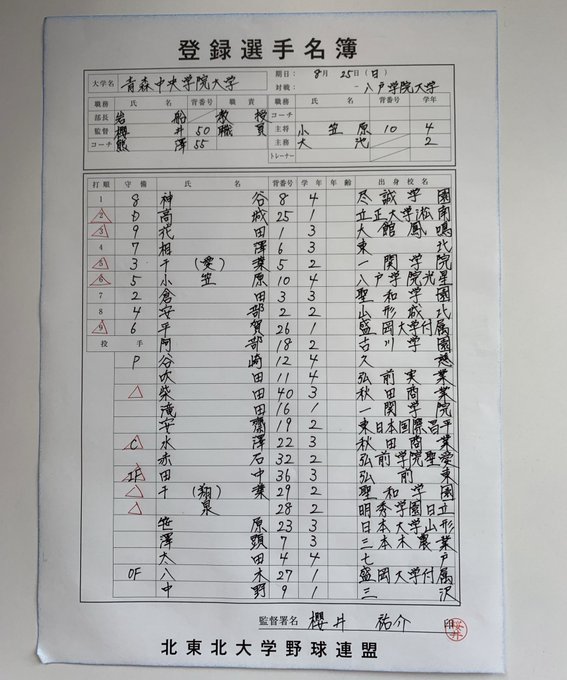 登録選手名簿
大学名 青森中央学院大学 期日: 8月 25日(日)
対戦: - 八戸学院大学
職務 氏名 背番号 職責 職務 氏名 背番号 学年
部長 岩船 教授 コーチ
監督 櫻井 50 職員 主将 小笠原 10 4
コーチ 熊澤 55 主務 大池 2
トレーナー
打順 守備 氏名 背番号 学年 年齢 出身校名
1 8 神谷 8 4 尽誠学園
2 D 高城 25 1 立正大学淞南
3 9 花田 1 3 大館鳳鳴
4 7 相澤 6 3 東北
5 3 千(愛)葉 5 2 一関学院
6 5 小笠原 10 4 八戸学院光星
7 2 倉田 3 3 聖和学園
8 4 安部 2 2 山形城北
9 6 平賀 26 1 盛岡大学付属
投手 阿部 18 2 古川学園
P 谷崎 12 4 久慈
吹田 11 4 弘前実業
柴田 40 3 秋田商業
滝田 16 1 一関学院
安齋 19 2 東日本国際昌平
C 水澤 22 3 秋田商業
赤石 32 2 弘前学院聖愛
IF 田中 36 3 弘前東
千(翔)葉 29 2 聖和学園
泉 28 2 明秀学園日立
笹原 23 3 日本大学山形
澤頭 7 3 三本木農業
太田 4 4 七戸
OF 八木 27 1 盛岡大学付属
中野 9 1 三沢
監督署名 櫻井 祐介 印
北東北大学野球連盟